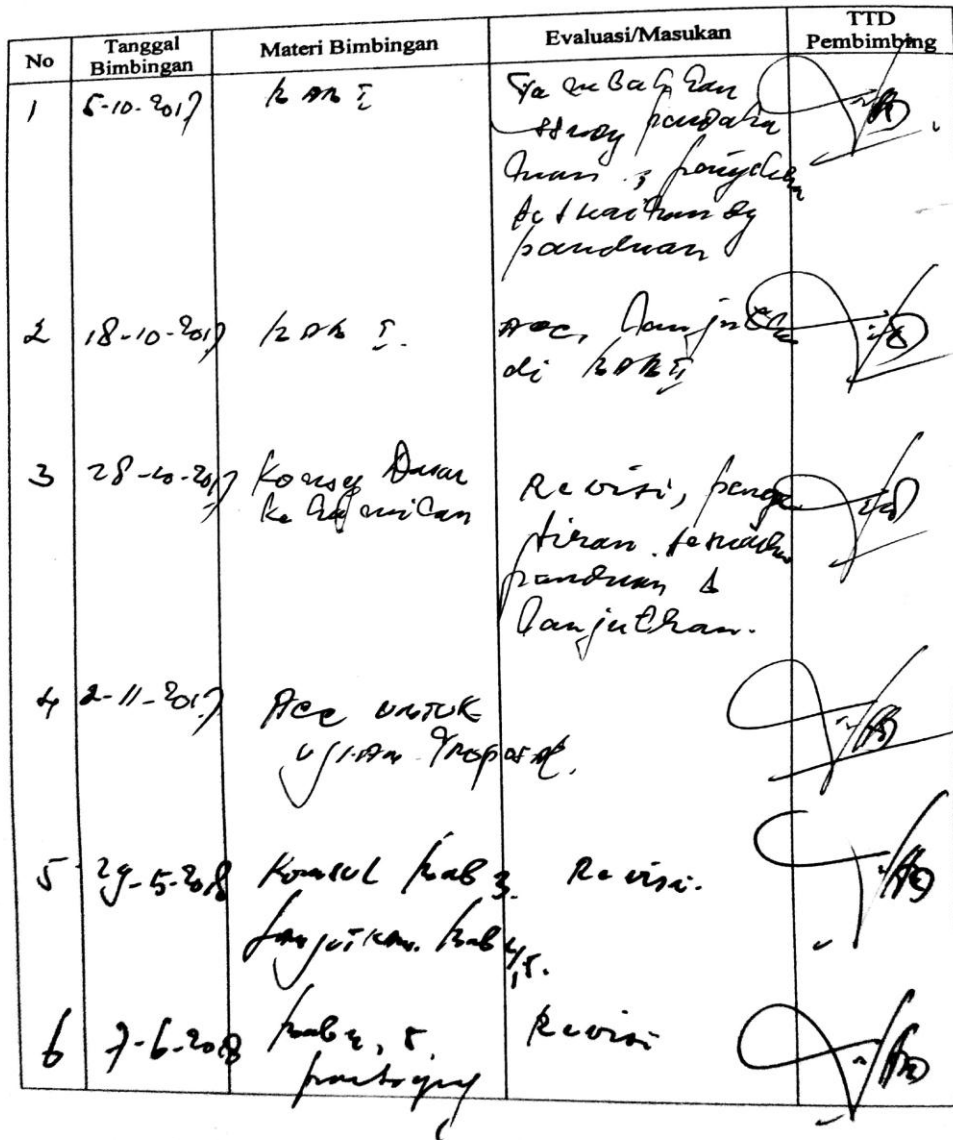 No Tanggal Bimbingan Materi Bimbingan Evaluasi/Masukan TTD Pembimbing
1 5-10-2017 BAB I Tambahkan
panduan
2 18-10-2017 BAB I. Acc, lanjutkan
di BAB II
3 28-10-2017 Konsep Dasar Revisi,
Kehamilan
panduan &
lanjutkan.
4 2-11-2017 Acc untuk
ujian proposal.
5 29-5-2018 Konsul bab 3. Revisi.
lanjutkan bab 4,5.
6 7-6-2018 bab 4, 5. Revisi